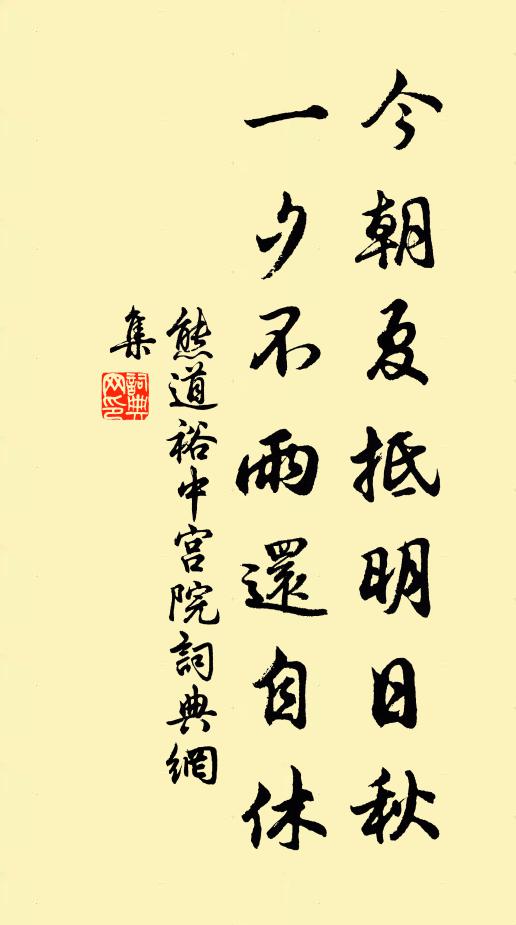 今朝夏抵明日秋
一夕不雨還自休
熊道裕中宫院詞典網
集
詞典
网印